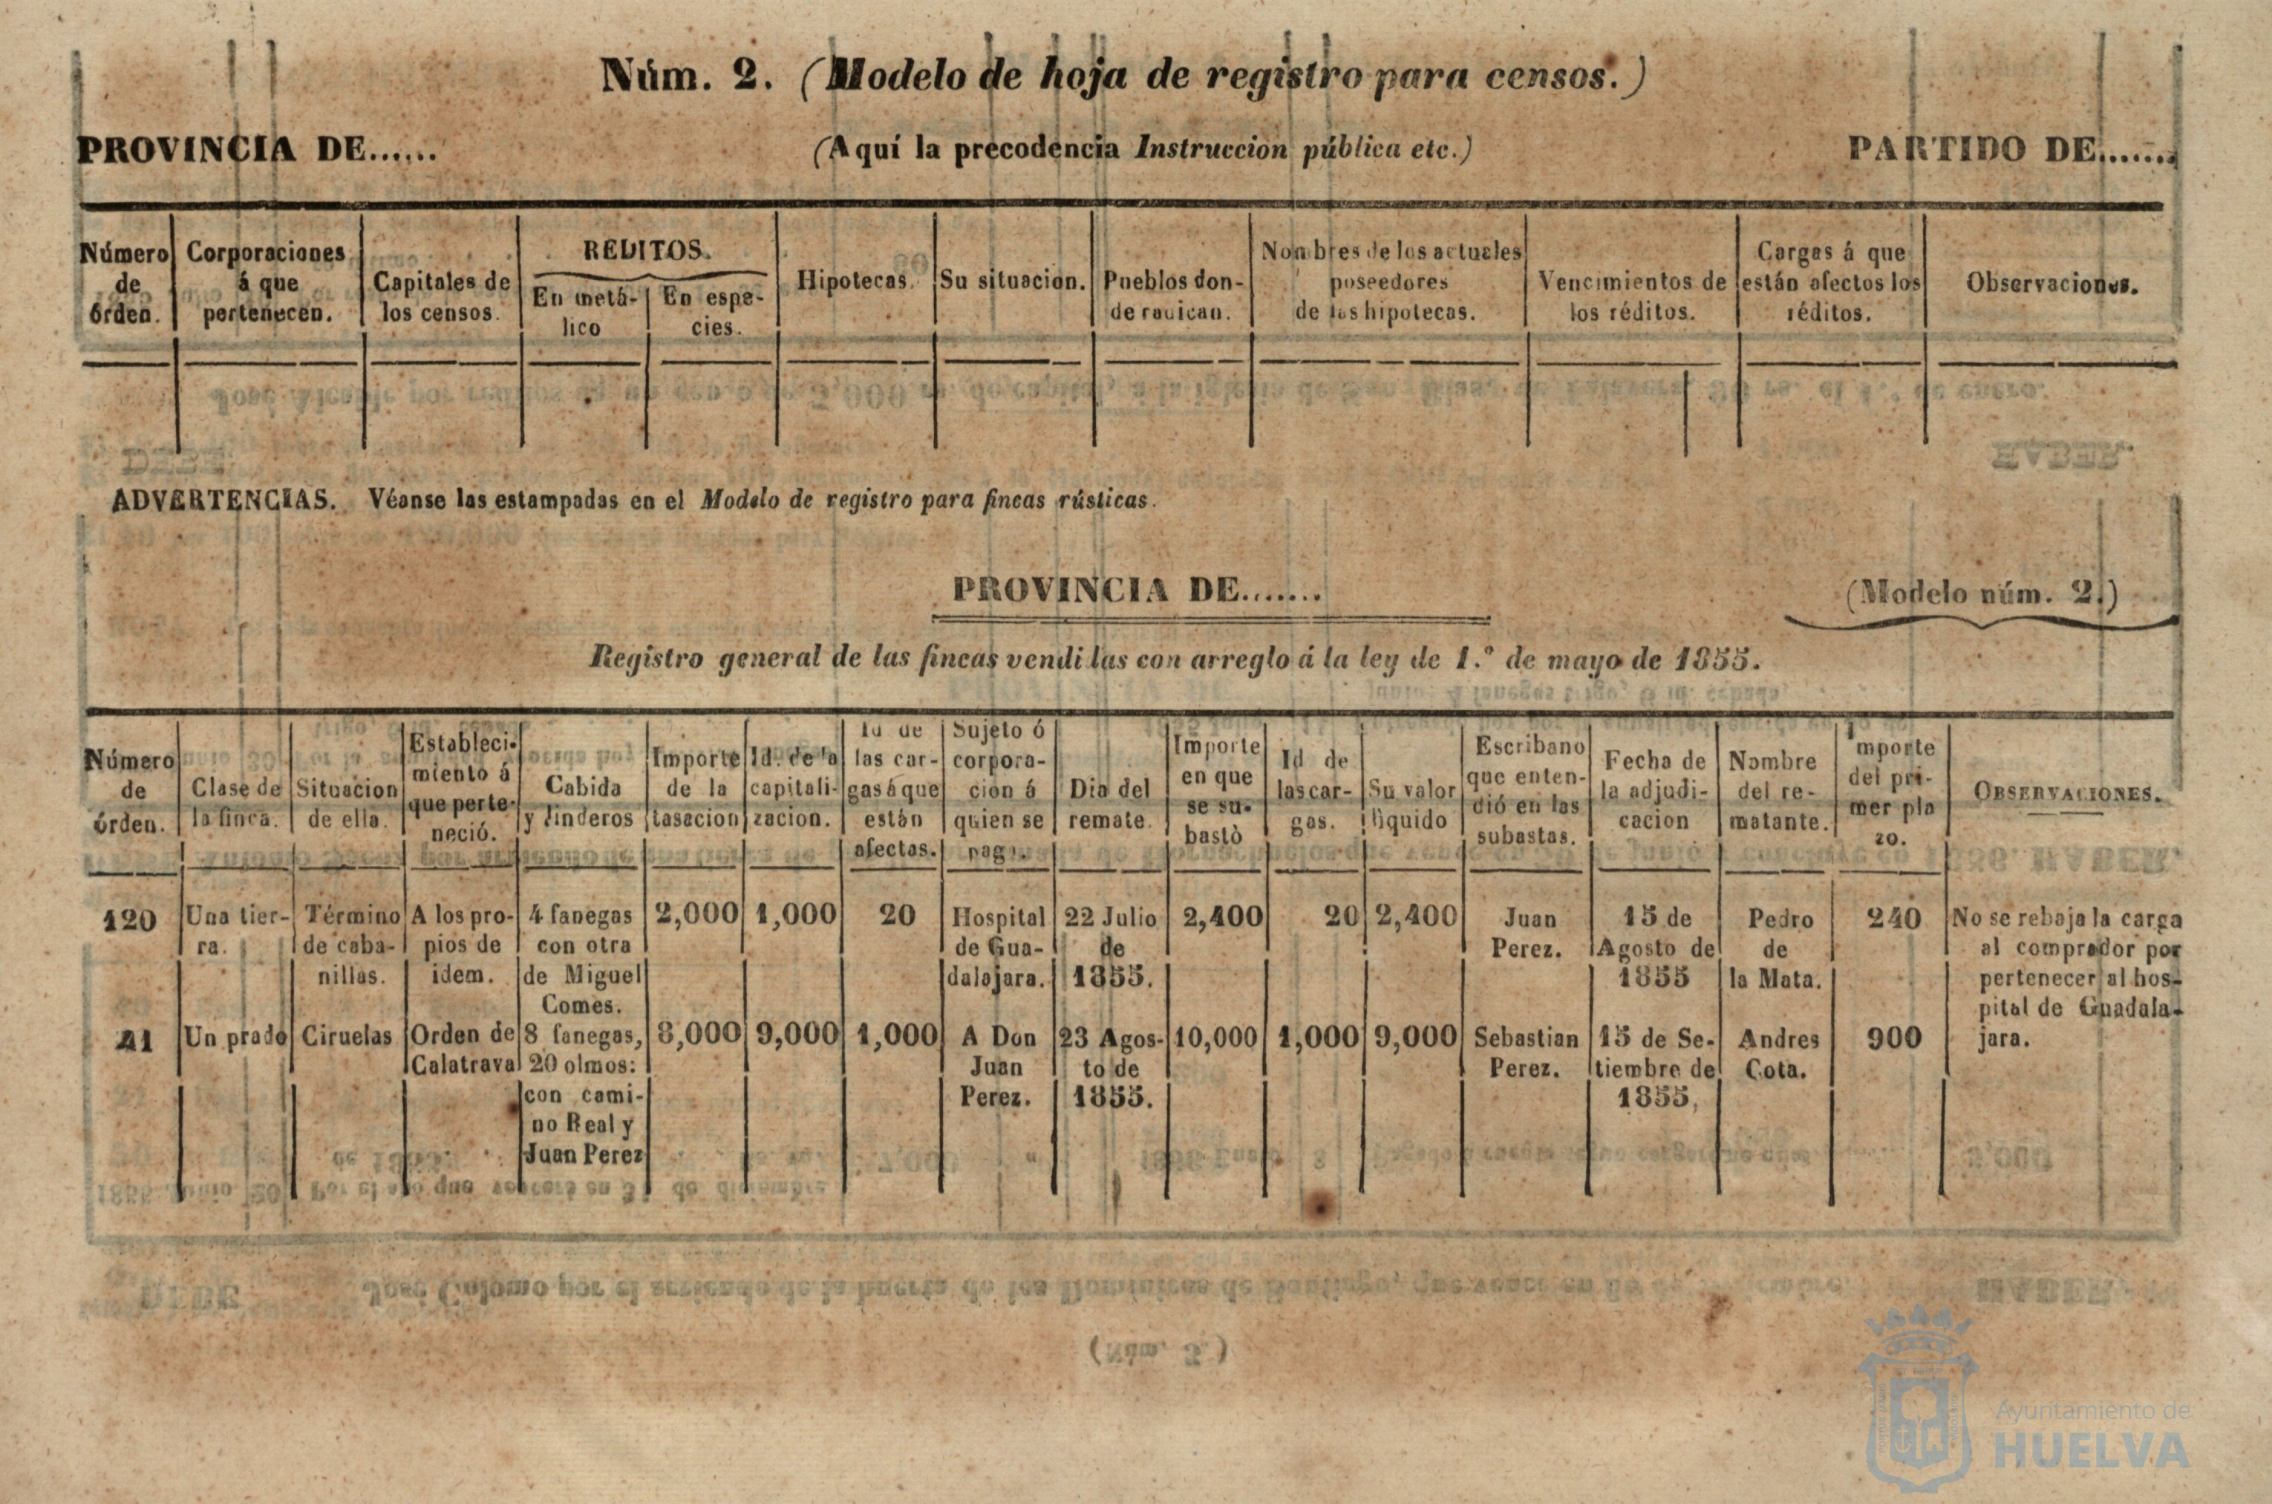 Núm. 2. (Modelo de hoja de registro para censos.)
PROVINCIA DE......
(Aquí la precodencia Instruccion pública etc.)
PARTIDO DE.......
Número
de
órden.
Corporaciones
á que
pertenecen.
Capitales de
los censos.
REDITOS.
En metá-
lico
En espe-
cies.
Hipotecas.
Su situacion.
Pueblos don-
de radican.
Nombres de los actuales
poseedores
de las hipotecas.
Vencimientos de
los réditos.
Cargas á que
están afectos los
réditos.
Observaciones.
ADVERTENCIAS. Véanse las estampadas en el Modelo de registro para fincas rústicas.
PROVINCIA DE.......
(Modelo núm. 2.)
Registro general de las fincas vendi las con arreglo á la ley de 1.º de mayo de 1855.
Número
de
órden.
Clase de
la finca.
Situacion
de ella.
Estableci-
miento á
que perte-
neció.
Cabida
y linderos
Importe
de la
tasacion
Id. de la
capitali-
zacion.
Id de
las car-
gas á que
están
afectas.
Sujeto ó
corpora-
cion á
quien se
paga.
Dia del
remate.
Importe
en que
se su-
bastò
Id de
las car-
gas.
Su valor
liquido
Escribano
que enten-
dió en las
subastas.
Fecha de
la adjudi-
cacion
Nombre
del re-
matante.
Importe
del pri-
mer pla
zo.
OBSERVACIONES.
120
Una tier-
ra.
Término
de caba-
nillas.
A los pro-
pios de
idem.
4 fanegas
con otra
de Miguel
Comes.
2,000
1,000
20
Hospital
de Gua-
dalajara.
22 Julio
de
1855.
2,400
20
2,400
Juan
Perez.
15 de
Agosto de
1855
Pedro
de
la Mata.
240
No se rebaja la carga
al comprador por
pertenecer al hos-
pital de Guadala-
jara.
41
Un prado
Ciruelas
Orden de
Calatrava
8 fanegas,
20 olmos:
con cami-
no Real y
Juan Perez
8,000
9,000
1,000
A Don
Juan
Perez.
23 Agos-
to de
1855.
10,000
1,000
9,000
Sebastian
Perez.
15 de Se-
tiembre de
1855,
Andres
Cota.
900
Ayuntamiento de
HUELVA